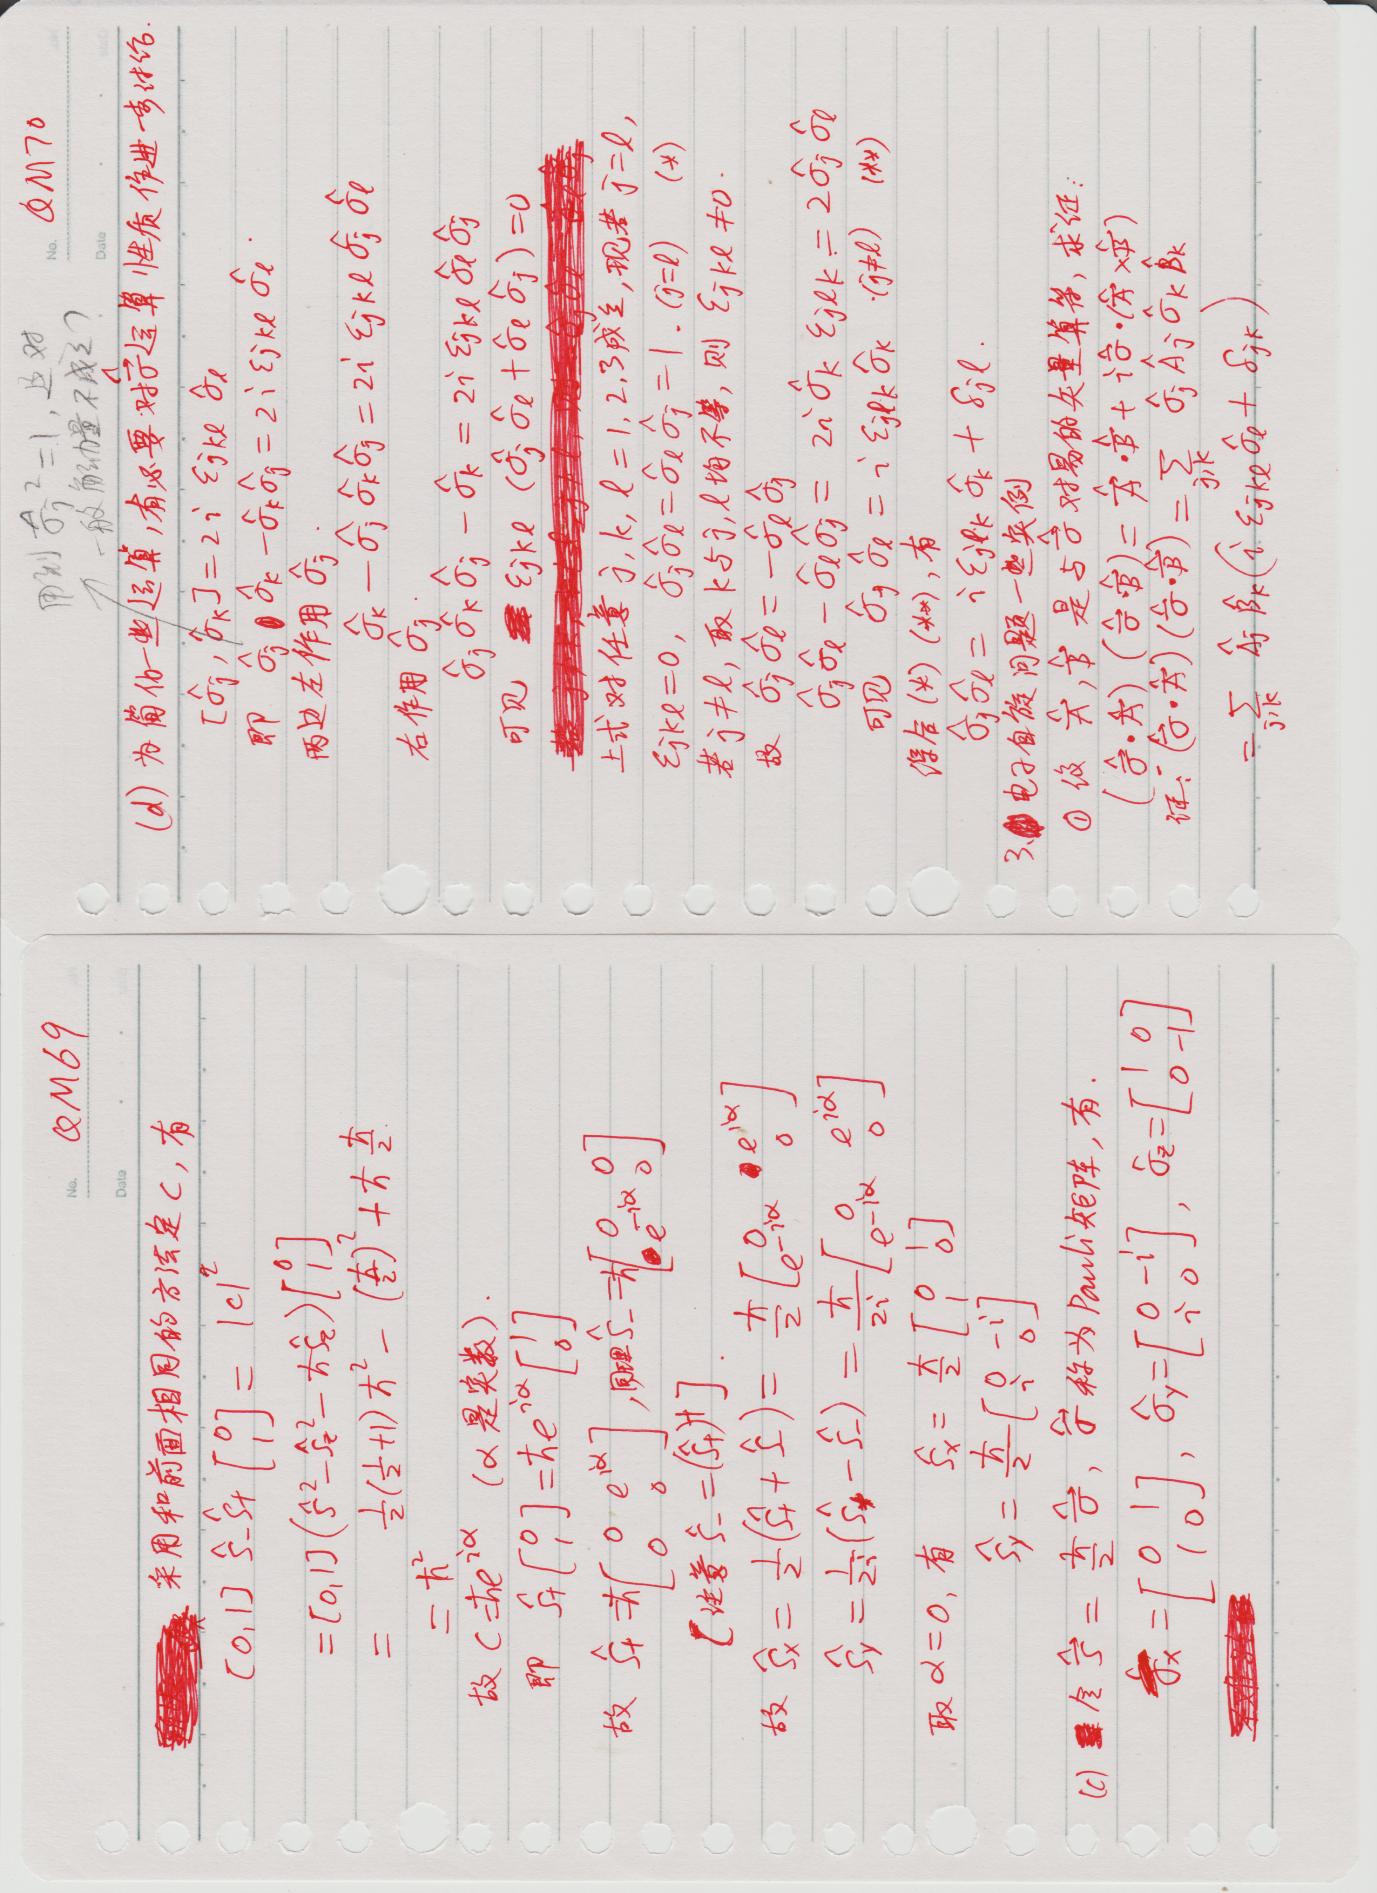 No. QM69
Date
采用和前面相同的方法定C,有
[0,1] Ŝ₋Ŝ₊ [0; 1] = |c|²
=[0,1](Ŝ²-Ŝz²-ħŜz)[0; 1]
= ½(½+1)ħ² - (ħ/2)² + ħ ħ/2.
= ħ²
故 C=ħe^{iα} (α是实数).
即 Ŝ₊[0; 1]=ħe^{iα}[1; 0]
故 Ŝ₊=ħ[0 e^{iα}; 0 0], 同理Ŝ₋=ħ[0 0; e^{-iα} 0]
[注意 Ŝ₋=(Ŝ₊)†].
故 Ŝx = ½(Ŝ₊+Ŝ₋) = ħ/2 [0 e^{iα}; e^{-iα} 0]
Ŝy = 1/2i (Ŝ₊-Ŝ₋) = ħ/2i [0 e^{iα}; e^{-iα} 0]
取α=0,有 Ŝx = ħ/2 [0 1; 1 0]
Ŝy = ħ/2 [0 -i; i 0]
(c) 令 Ŝ⃗ = ħ/2 σ̂⃗, σ̂⃗ 称为Pauli矩阵,有.
σ̂x=[0 1; 1 0], σ̂y=[0 -i; i 0], σ̂z=[1 0; 0 -1]
用到 σ̂j²=1, 这对
一般角动量不成立?
No. QM70
Date
(d) 为简化一些运算,有必要对σ̂⃗运算性质作进一步讨论.
[σ̂j, σ̂k]=2i εjkl σ̂l
即 σ̂j σ̂k - σ̂kσ̂j = 2i εjkl σ̂l.
两边左作用 σ̂j.
σ̂k - σ̂j σ̂kσ̂j = 2i εjkl σ̂j σ̂l
右作用 σ̂j.
σ̂j σ̂k σ̂j - σ̂k = 2i εjkl σ̂l σ̂j
可见 εjkl (σ̂j σ̂l + σ̂l σ̂j)=0
上式对任意 j, k, l = 1,2,3成立,现若 j=l,
εjkl=0, σ̂jσ̂l=σ̂lσ̂j=1. (j=l) (*)
若j≠l, 取 k与j,l均不等,则 εjkl≠0.
故 σ̂jσ̂l = -σ̂lσ̂j
σ̂jσ̂l - σ̂lσ̂j = 2i σ̂k εjlk = 2σ̂jσ̂l
可见 σ̂j σ̂l = i εjlk σ̂k .(j≠l) (**)
综合(*) (**),有
σ̂jσ̂l = i εjlk σ̂k + δjl.
3. 电子自旋问题一些实例
① 设 Â⃗, B̂⃗ 是与σ̂⃗对易的矢量算符,求证:
(σ̂⃗·Â⃗) (σ̂⃗·B̂⃗) = Â⃗·B̂⃗ + iσ̂⃗·(Â⃗×B̂⃗)
证: (σ̂⃗·Â⃗) (σ̂⃗·B̂⃗) = Σ_{j,k} σ̂j Âj σ̂k B̂k
= Σ_{j,k} Âj B̂k (i εjkl σ̂l + δjk)